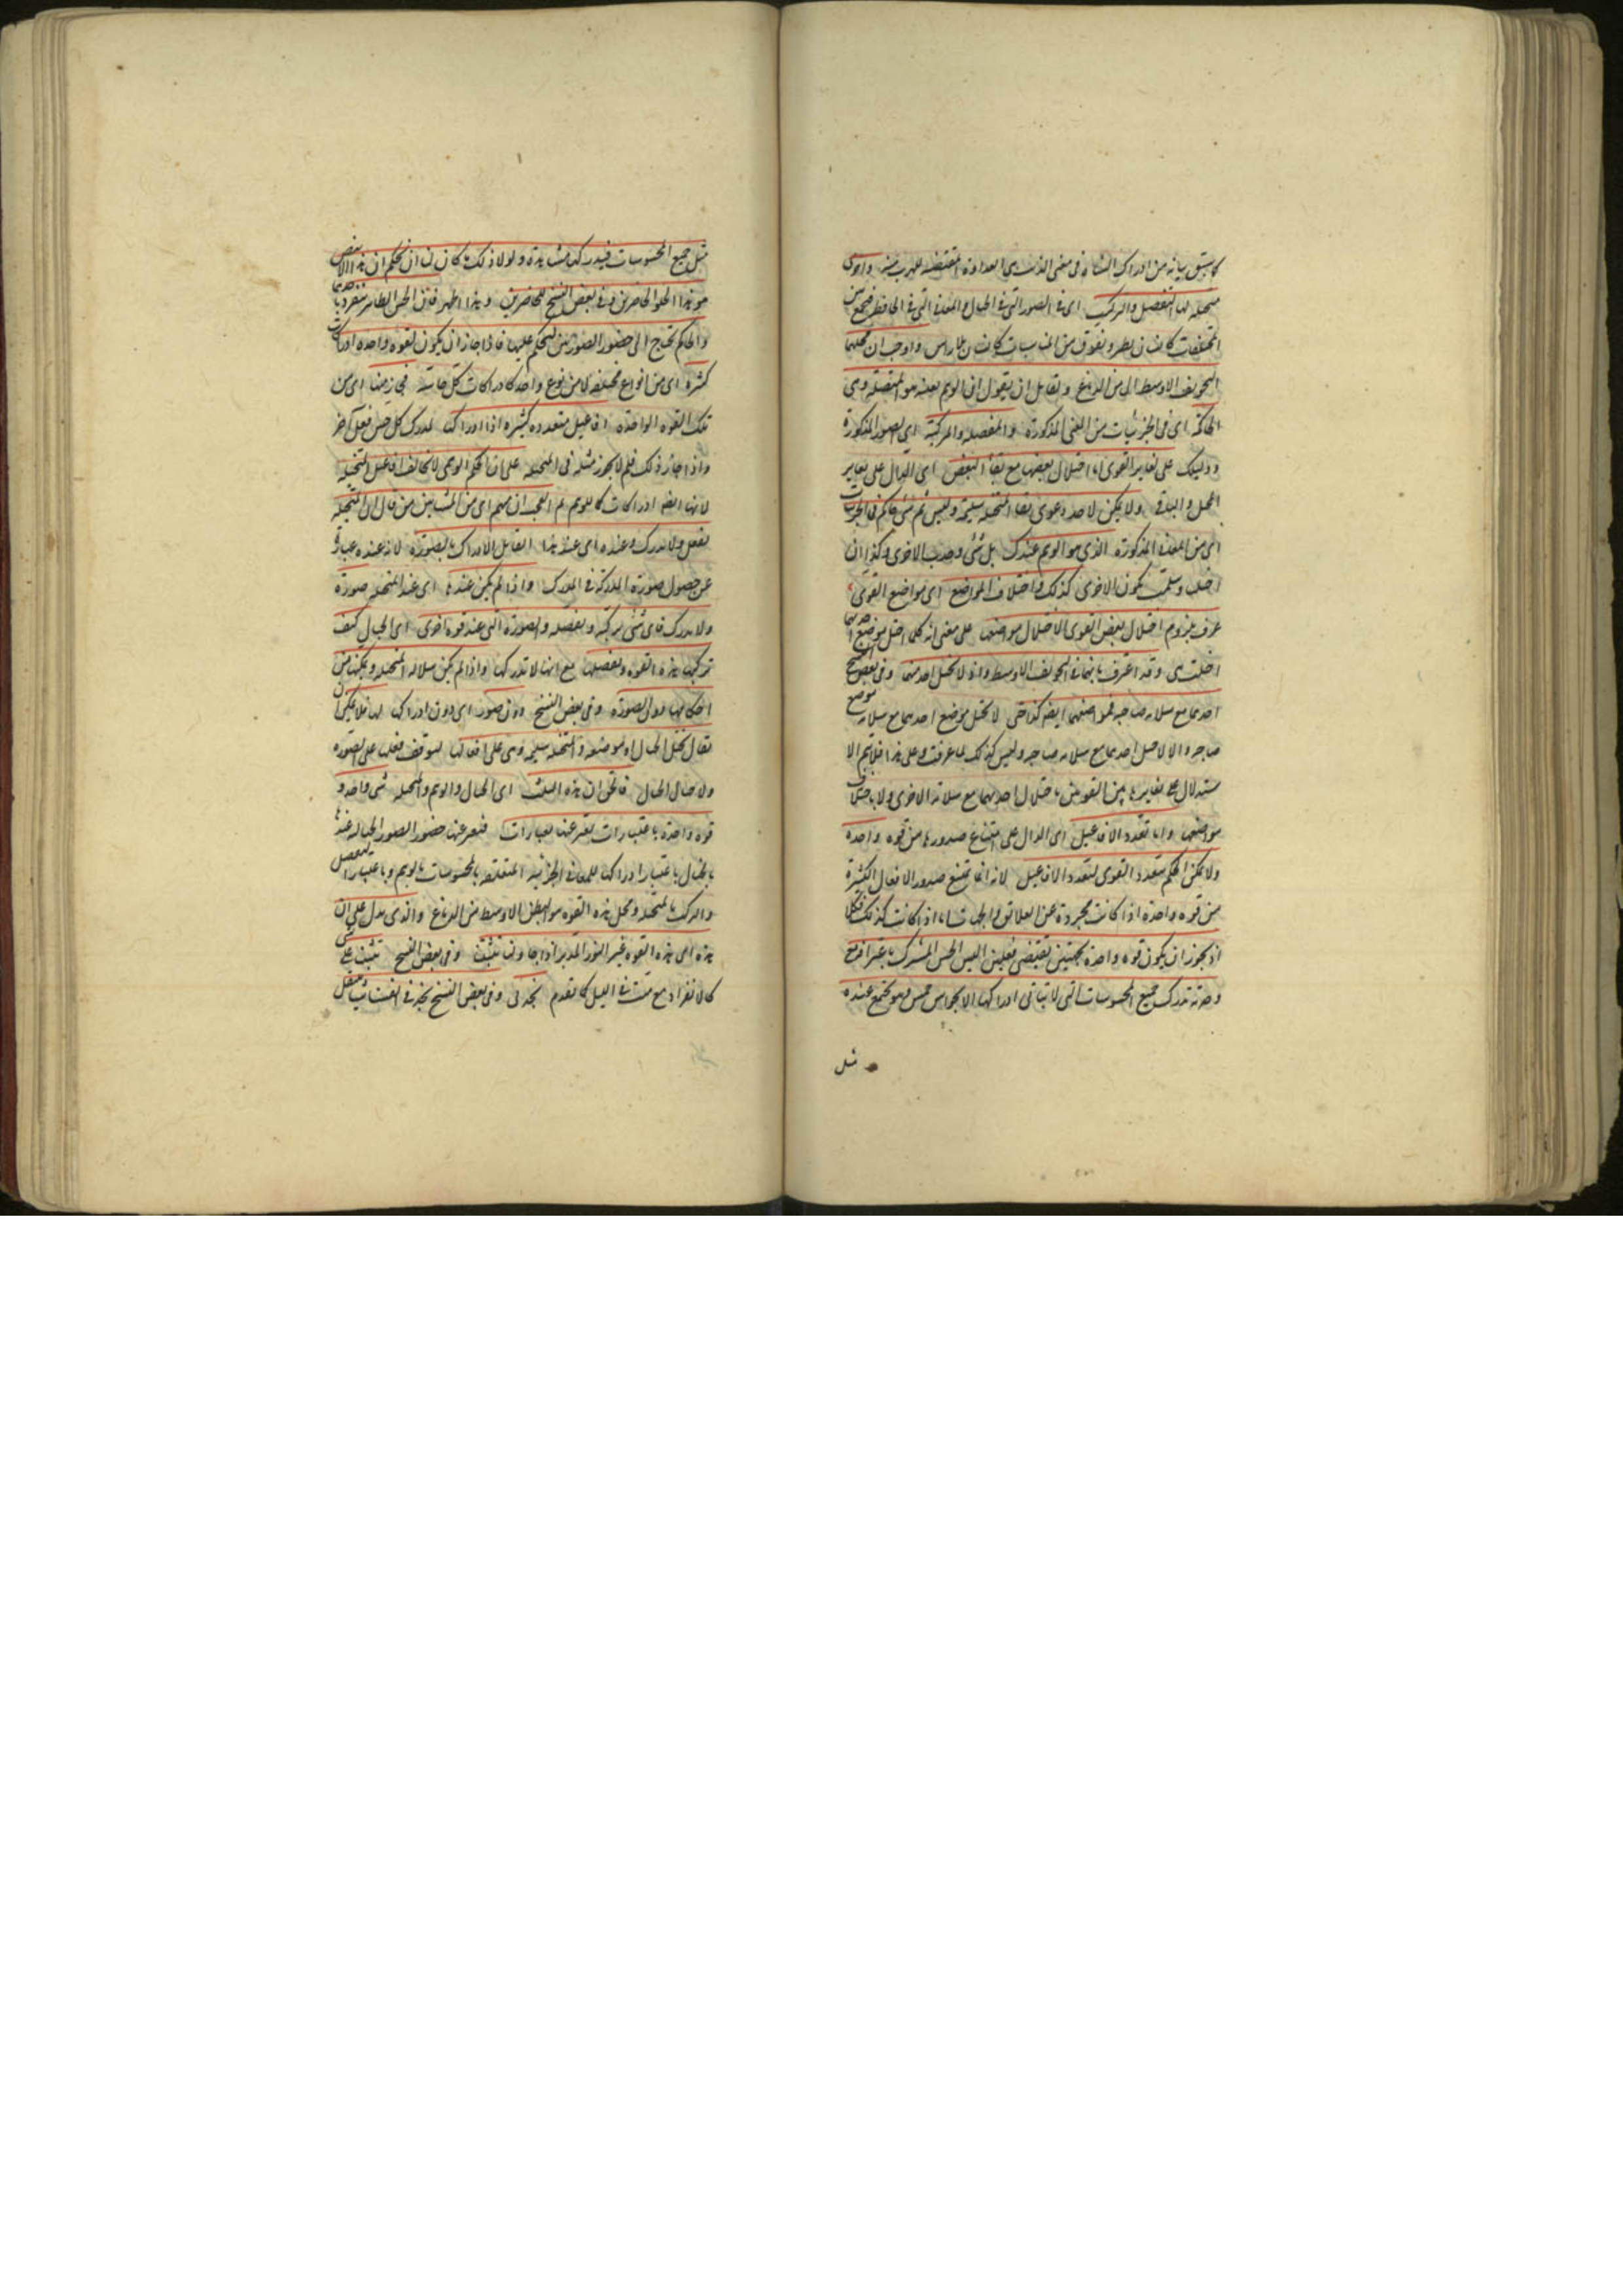 كما سبق بيانه من ادراك الشاة فى معنى الذئب هى العداوة المقتضية للهرب منه واخرى
متخيلة لها التفصيل والتركيب اى فى الصور التى فى الخيال والمعانى التى فى الحافظة فتجمع بين
المختلفات كانسان يطير وتفرق من المناسبات كانسان بلا راس واوجب ان محلهما
التجويف الاوسط اى من الدماغ ولقائل ان يقول ان الوهم بعينه هو المتخيلة وهى
الحاكمة اى فى الجزئيات من المعنى المذكورة والمفصلة والمركبة اى الصور المذكورة
ودليلك على تغاير القوى اما اختلال بعضها مع بقاء البعض اى الدال على تغاير
المختل والباقى ولا يمكن لاحد دعوى بقاء المتخيلة سليمة وليس ثم شئ حاكم فى الجزئيات
اى من المعانى المذكورة الذى هو الوهم عندك بل شئ وحدت الاخرى وكذا ان
اختلت وسلمت تكون الاخرى كذلك واختلاف المواضع اى مواضع القوى
عرف بلزوم اختلال بعض القوى لاختلال مواضعها على معنى انه كلما اختل موضع احديهما
اختلت هى وقد اعترف بانهما فى التجويف الاوسط واذ لا تختل احدهما وفى بعض النسخ
احديهما مع سلامة صاحبه فمواضعهما ايضا كذا حتى لا يختل موضع احديهما مع سلامة موضع
صاحبه والا لاختل احديهما مع سلامة صاحبه وليس كذلك لما عرفت وعلى هذا فلا يتم الا
ستدلال على تغاير ما بين القوتين باختلال احديهما مع سلامة الاخرى ولا باختلاف
مواضعها واما تعدد الافاعيل اى الدال على امتناع صدورها من قوة واحدة
ولا يمكن الحكم بتعدد القوى لتعدد الافاعيل لانه انما يمتنع صدور الافعال الكثيرة
من قوة واحدة اذا كانت مجردة عن العلائق والجهات اما اذا كانت كذلك فلا
اذ يجوز ان يكون قوة واحدة بجهتين تقتضى فعلين اليس الحس المشترك باعترافه مع
وحدته تدرك جميع المحسوسات التى لا يتاتى ادراكها الا بحواس خمس وهو مجتمع عنده
مثل
مثل جميع المحسوسات فيدركها مشاهدة ولولا ذلك ما كان لنا ان نحكم ان هذا الابيض
هو هذا الحلو الحاضرين وفى بعض النسخ للحاضرين وهذا اظهر فان الحس الظاهر منفرد باحدهما
والحاكم يحتاج الى حضور الصورتين ليحكم عليهما فاذا جاز ان يكون لقوة واحدة ادراكات
كثيرة اى من انواع مختلفة لا من نوع واحد كادراكات كل حاسة فجوزنا اى من
تلك القوة الواحدة افاعيل متعددة كثيرة اذا ادراك لمدرك كل حس فعل آخر
واذا جاز ذلك فلم لا يجوز مثله فى المتخيلة على ان الحكم الوهمى لا يخالف افاعيل المتخيلة
لانها ايضا ادراكات كالوهم ثم العجب ان منهم اى من المشائين من قال ان المتخيلة
تفعل ولا تدرك وعنده اى عند هذا القائل الادراك بالصورة لانه عنده عبارة
عن حصول صورة المدرك فى المدرك واذا لم يكن عندها اى عند المتخيلة صورة
ولا تدرك فاى شئ تركبه وتفصله والصورة التى عند قوة اخرى اى الخيال كيف
تركبها هذه القوة وتفصلها مع انها لا تدركها واذا لم يكن سلامة المتخيلة وتمكنها من
احكامها دون الصورة وفى بعض النسخ دون صور اى دون ادراك لها فلا يمكن ان
يقال يختل الخيال او موضعه والمتخيلة سليمة وهى على افعالها لتوقف فعلها على الصورة
ولا خيال الخيال فالحق ان هذه الثلث اى الخيال والوهم والمتخيلة شئ واحد و
قوة واحدة باعتبارات يعبر عنها بعبارات فيعبر عنها بحضور الصور الخيالية عندها
بالخيال وباعتبار ادراكها للمعانى الجزئية المتعلقة بالمحسوسات بالوهم وباعتبار التفصيل
والتركيب بالمتخيلة ومحل هذه القوة هو البطن الاوسط من الدماغ والذى يدل على ان
هذه اى هذه القوة غير النور المدبر انا اذا حاولنا تثبتا وفى بعض النسخ تثبت على شئ
كالانفراد مع ميت فى الليل كما تقدم نجد فى وفى بعض النسخ نجد من انفسنا شيئا ينتقل